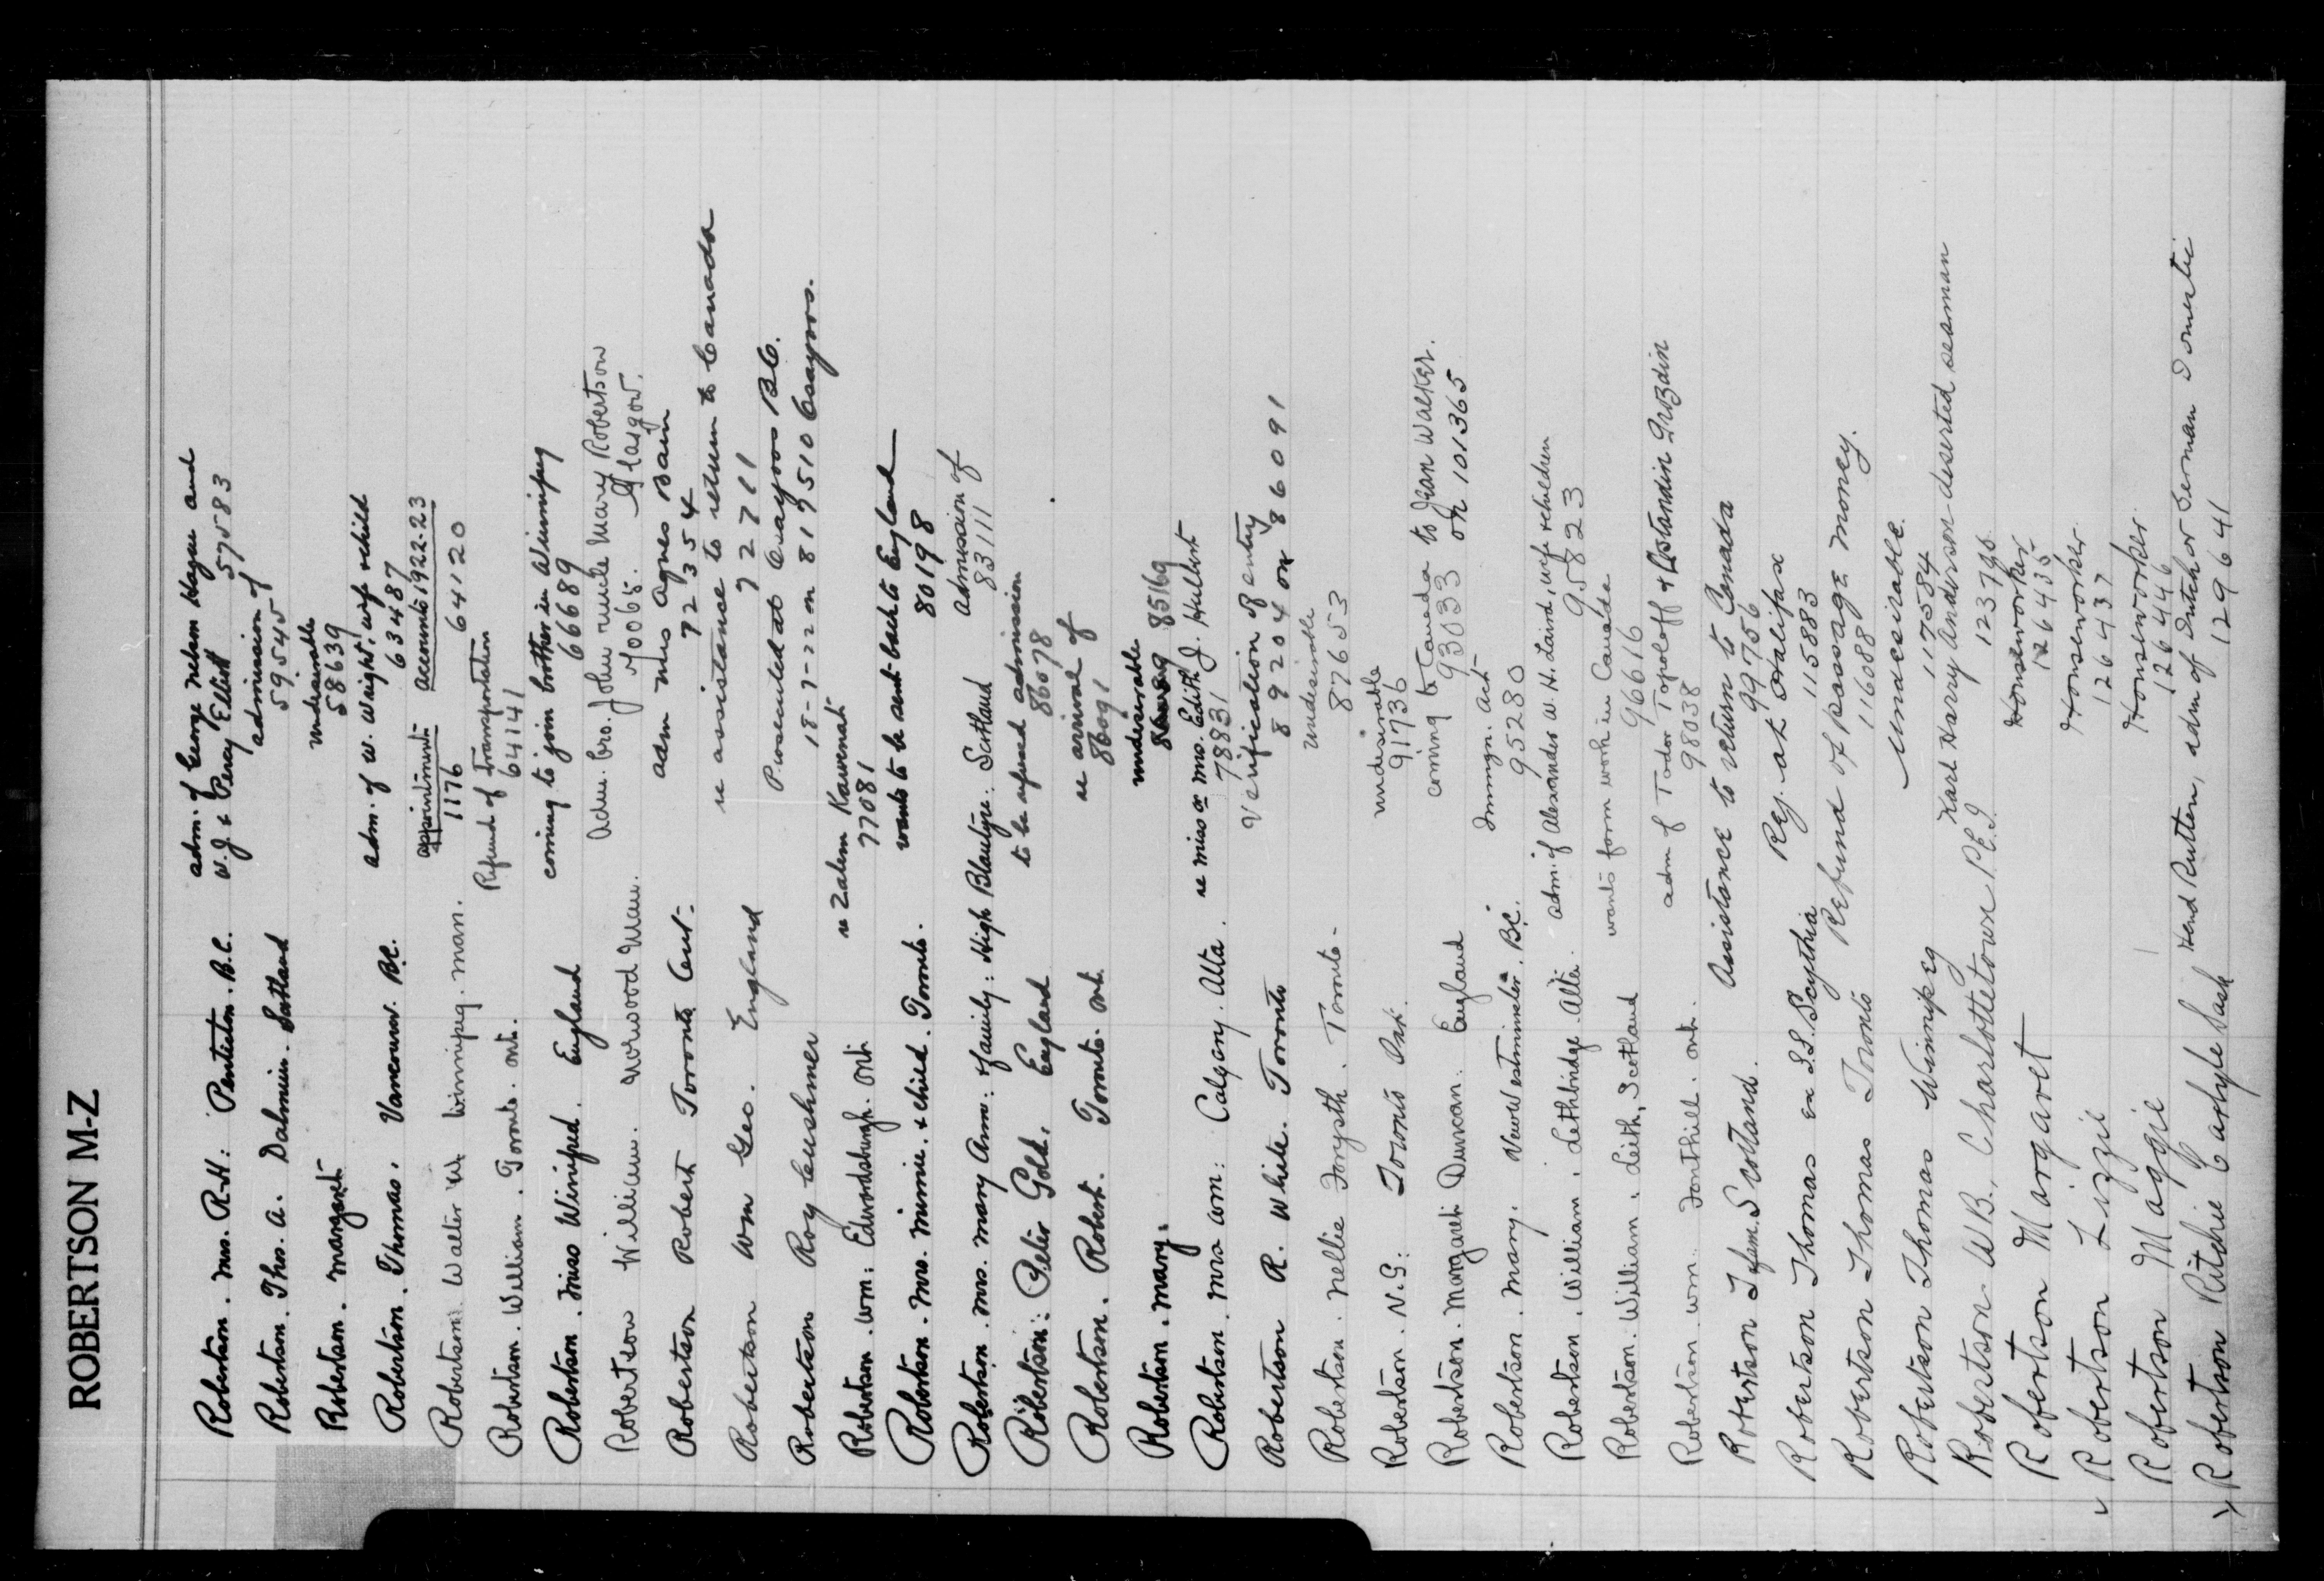 ROBERTSON M-Z
Robertson. Mrs. R-H: Penticton. B.C. adm. of George Nelson Hagan and
W. J. & Percy Elliott 57583
Robertson. Thos. A. Dalmuir. Scotland admission of
59545
Robertson. Margaret undesirable
58639
Robertson. Thomas. Vancouver. B.C. adm. of W. Waight, wife & child
63487
Robertson Walter Winnipeg. Man. appointment accounts 1922-23
1176 64120
Robertson. William. Toronto. Ont. Refund of Transportation
64141
Robertson. Miss Winifred. England coming to join brother in Winnipeg
66689
Robertson William. Norwood Man. Adm. bro. John & uncle Mary Robertson
70065. Glasgow.
Robertson Robert Toronto Ont- adm Mrs Agnes Bain
72354
Robertson Wm Geo. England re assistance to return to Canada
72711
Robertson Roy Cushner Prosecuted at Osoyoos B.C.
18-7-22 on 817510 Osoyoos.
Robertson. Wm: Edwardsburgh. Ont re Zalem Kawenat
77081
Robertson. Mrs. Minnie. & child. Toronto. wants to be sent back to England
80198
Robertson. Mrs. Mary Ann: & family: High Blantyre: Scotland admission of
83111
Robertson: Peter Gold. England to be refused admission
86078
Robertson. Robert. Toronto. Ont. re arrival of
86091
Robertson. Mary. undesirable
85169
Robertson. Mrs Wm: Calgary. Alta. re Miss or Mrs. Edith J. Hulbert
78831
Robertson R. White. Toronto Verification of entry
89204 on 86091
Robertson. Nellie Forsyth. Toronto- undesirable
87653
Robertson. N.G: Toronto Ont. undesirable
91736
Robertson. Margaret Duncan. England coming to Canada to Jean Walker.
93033 on 101365
Robertson. Mary. New Westminster. B.C. Immgn. Act
95280
Robertson. William. Lethbridge. Alta. adm. of Alexander W. H. Laird, wife & children
95823
Robertson. William. Leith, Scotland wants farm work in Canada
96616
Robertson. Wm. Fonthill. Ont. adm of Todor Topoloff &
98038
Robertson Scotland. Assistance to return to Canada
99756
Robertson Thomas ex S.S. Scythia Rej. at Halifax
115883
Robertson Thomas Toronto Refund of passage money.
116088
Robertson Thomas Winnipeg Undesirable.
117584
Robertson. W.B., Charlottetown P.E.I. Karl Harry Anderson deserted seaman
Robertson Margaret Houseworker
126435
Robertson Lizzie Houseworker
126437
Robertson Maggie Houseworker
126446
Robertson Ritchie Carlyle Sask Hend Rutten, adm of Dutch or German Domestic
129641